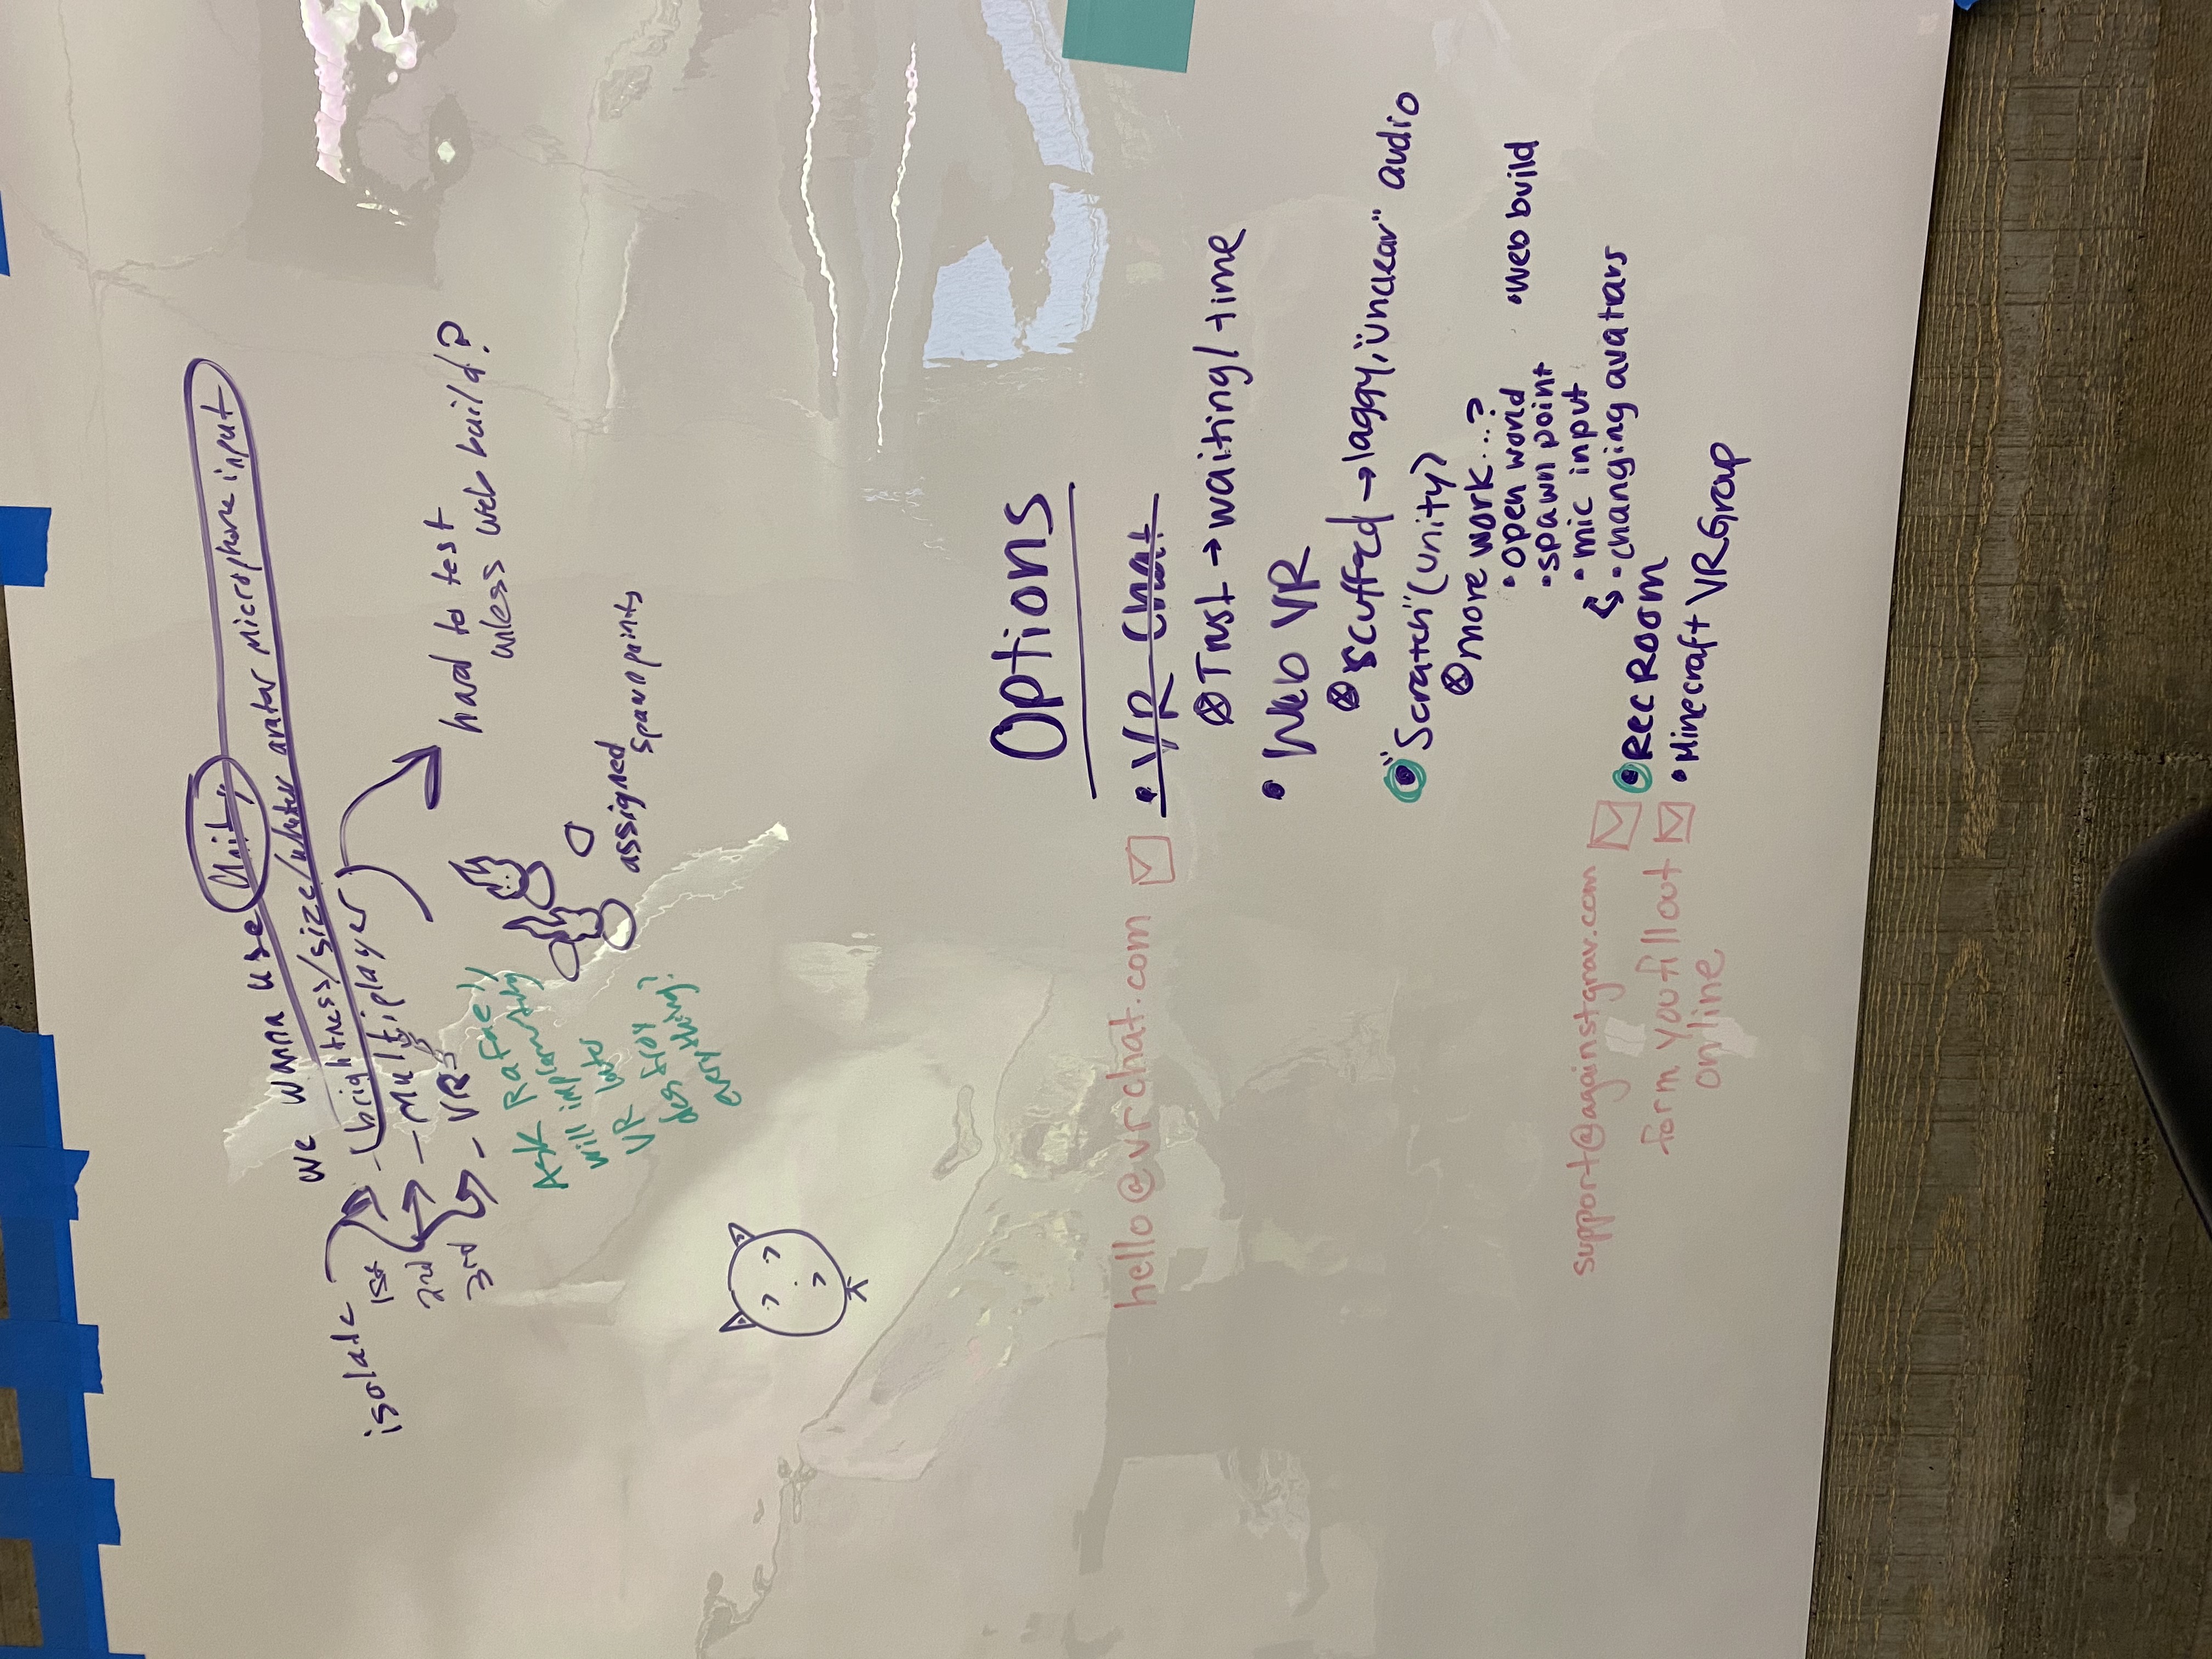 we wanna use Unity
isolate
1st - brightness/size/whatever avatar microphone input
2nd - Multiplayer
3rd - VR
hard to test
unless web build?
Ask Rafael,
will implementing
VR later
destroy
everything?
assigned
spawnpoints
Options
hello@vrchat.com
• VR Chat
Trust → waiting/time
• Web VR
scuffed → laggy, "unclear" audio
• "Scratch" (unity)
more work...?
• open world • Web build
• spawn point
• mic input
• changing avatars
support@againstgrav.com
• REC ROOM
form you fill out
online
• Minecraft VR Group